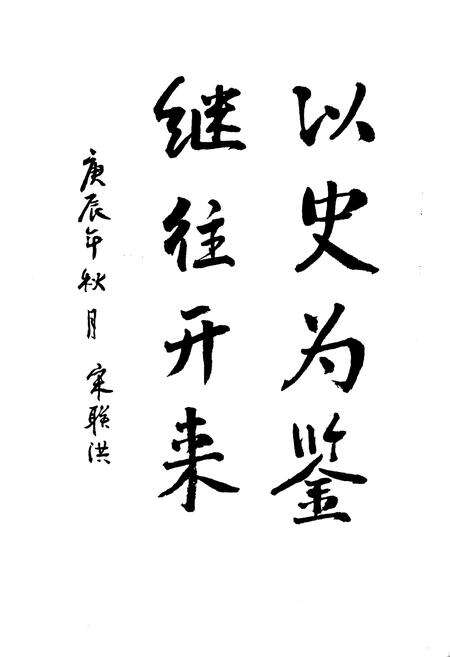 以史为鉴
继往开来
庚辰年秋月 宋联洪